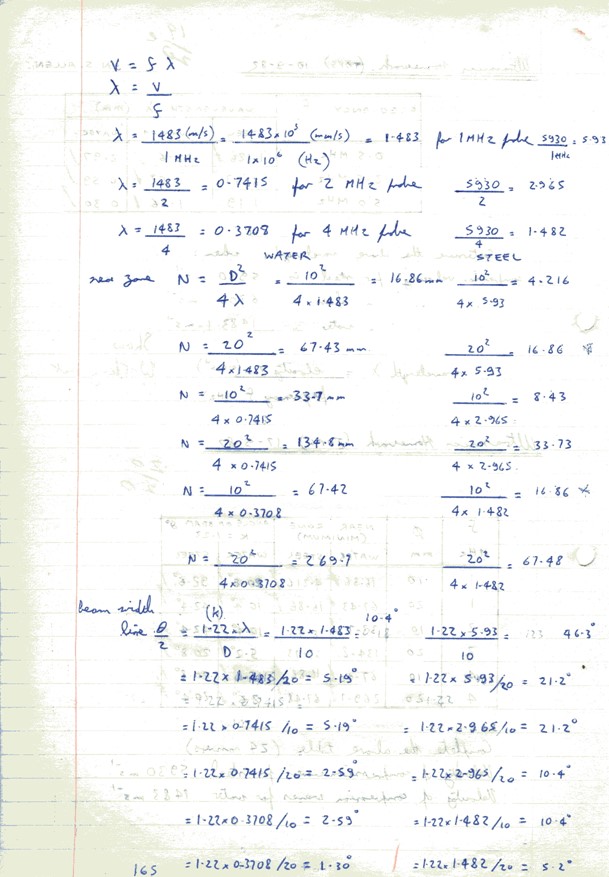 V = f λ
λ = V/f
λ = 1483 (m/s) / 1 MHz = 1483 × 10³ (mm/s) / 1 × 10⁶ (Hz) = 1.483 for 1 MHz probe 5930 / 1MHz = 5.93
λ = 1483 / 2 = 0.7415 for 2 MHz probe 5930 / 2 = 2.965
λ = 1483 / 4 = 0.3708 for 4 MHz probe 5930 / 4 = 1.482
WATER STEEL
near zone N = D² / 4λ = 10² / 4 × 1.483 = 16.86 mm 10² / 4 × 5.93 = 4.216
N = 20² / 4 × 1.483 = 67.43 mm 20² / 4 × 5.93 = 16.86
N = 10² / 4 × 0.7415 = 33.7 mm 10² / 4 × 2.965 = 8.43
N = 20² / 4 × 0.7415 = 134.8 mm 20² / 4 × 2.965 = 33.73
N = 10² / 4 × 0.3708 = 67.42 10² / 4 × 1.482 = 16.86
N = 20² / 4 × 0.3708 = 269.7 20² / 4 × 1.482 = 67.48
beam width
line θ/2 = (k) 1.22 × λ / D = 1.22 × 1.483 / 10 = 10.4° 1.22 × 5.93 / 10 = 46.3°
= 1.22 × 1.483 /20 = 5.19° 1.22 × 5.93 /20 = 21.2°
= 1.22 × 0.7415 /10 = 5.19° = 1.22 × 2.965 /10 = 21.2°
= 1.22 × 0.7415 /20 = 2.59° = 1.22 × 2.965 /20 = 10.4°
= 1.22 × 0.3708 /10 = 2.59° = 1.22 × 1.482 /10 = 10.4°
165 = 1.22 × 0.3708 /20 = 1.30° = 1.22 × 1.482 /20 = 5.2°